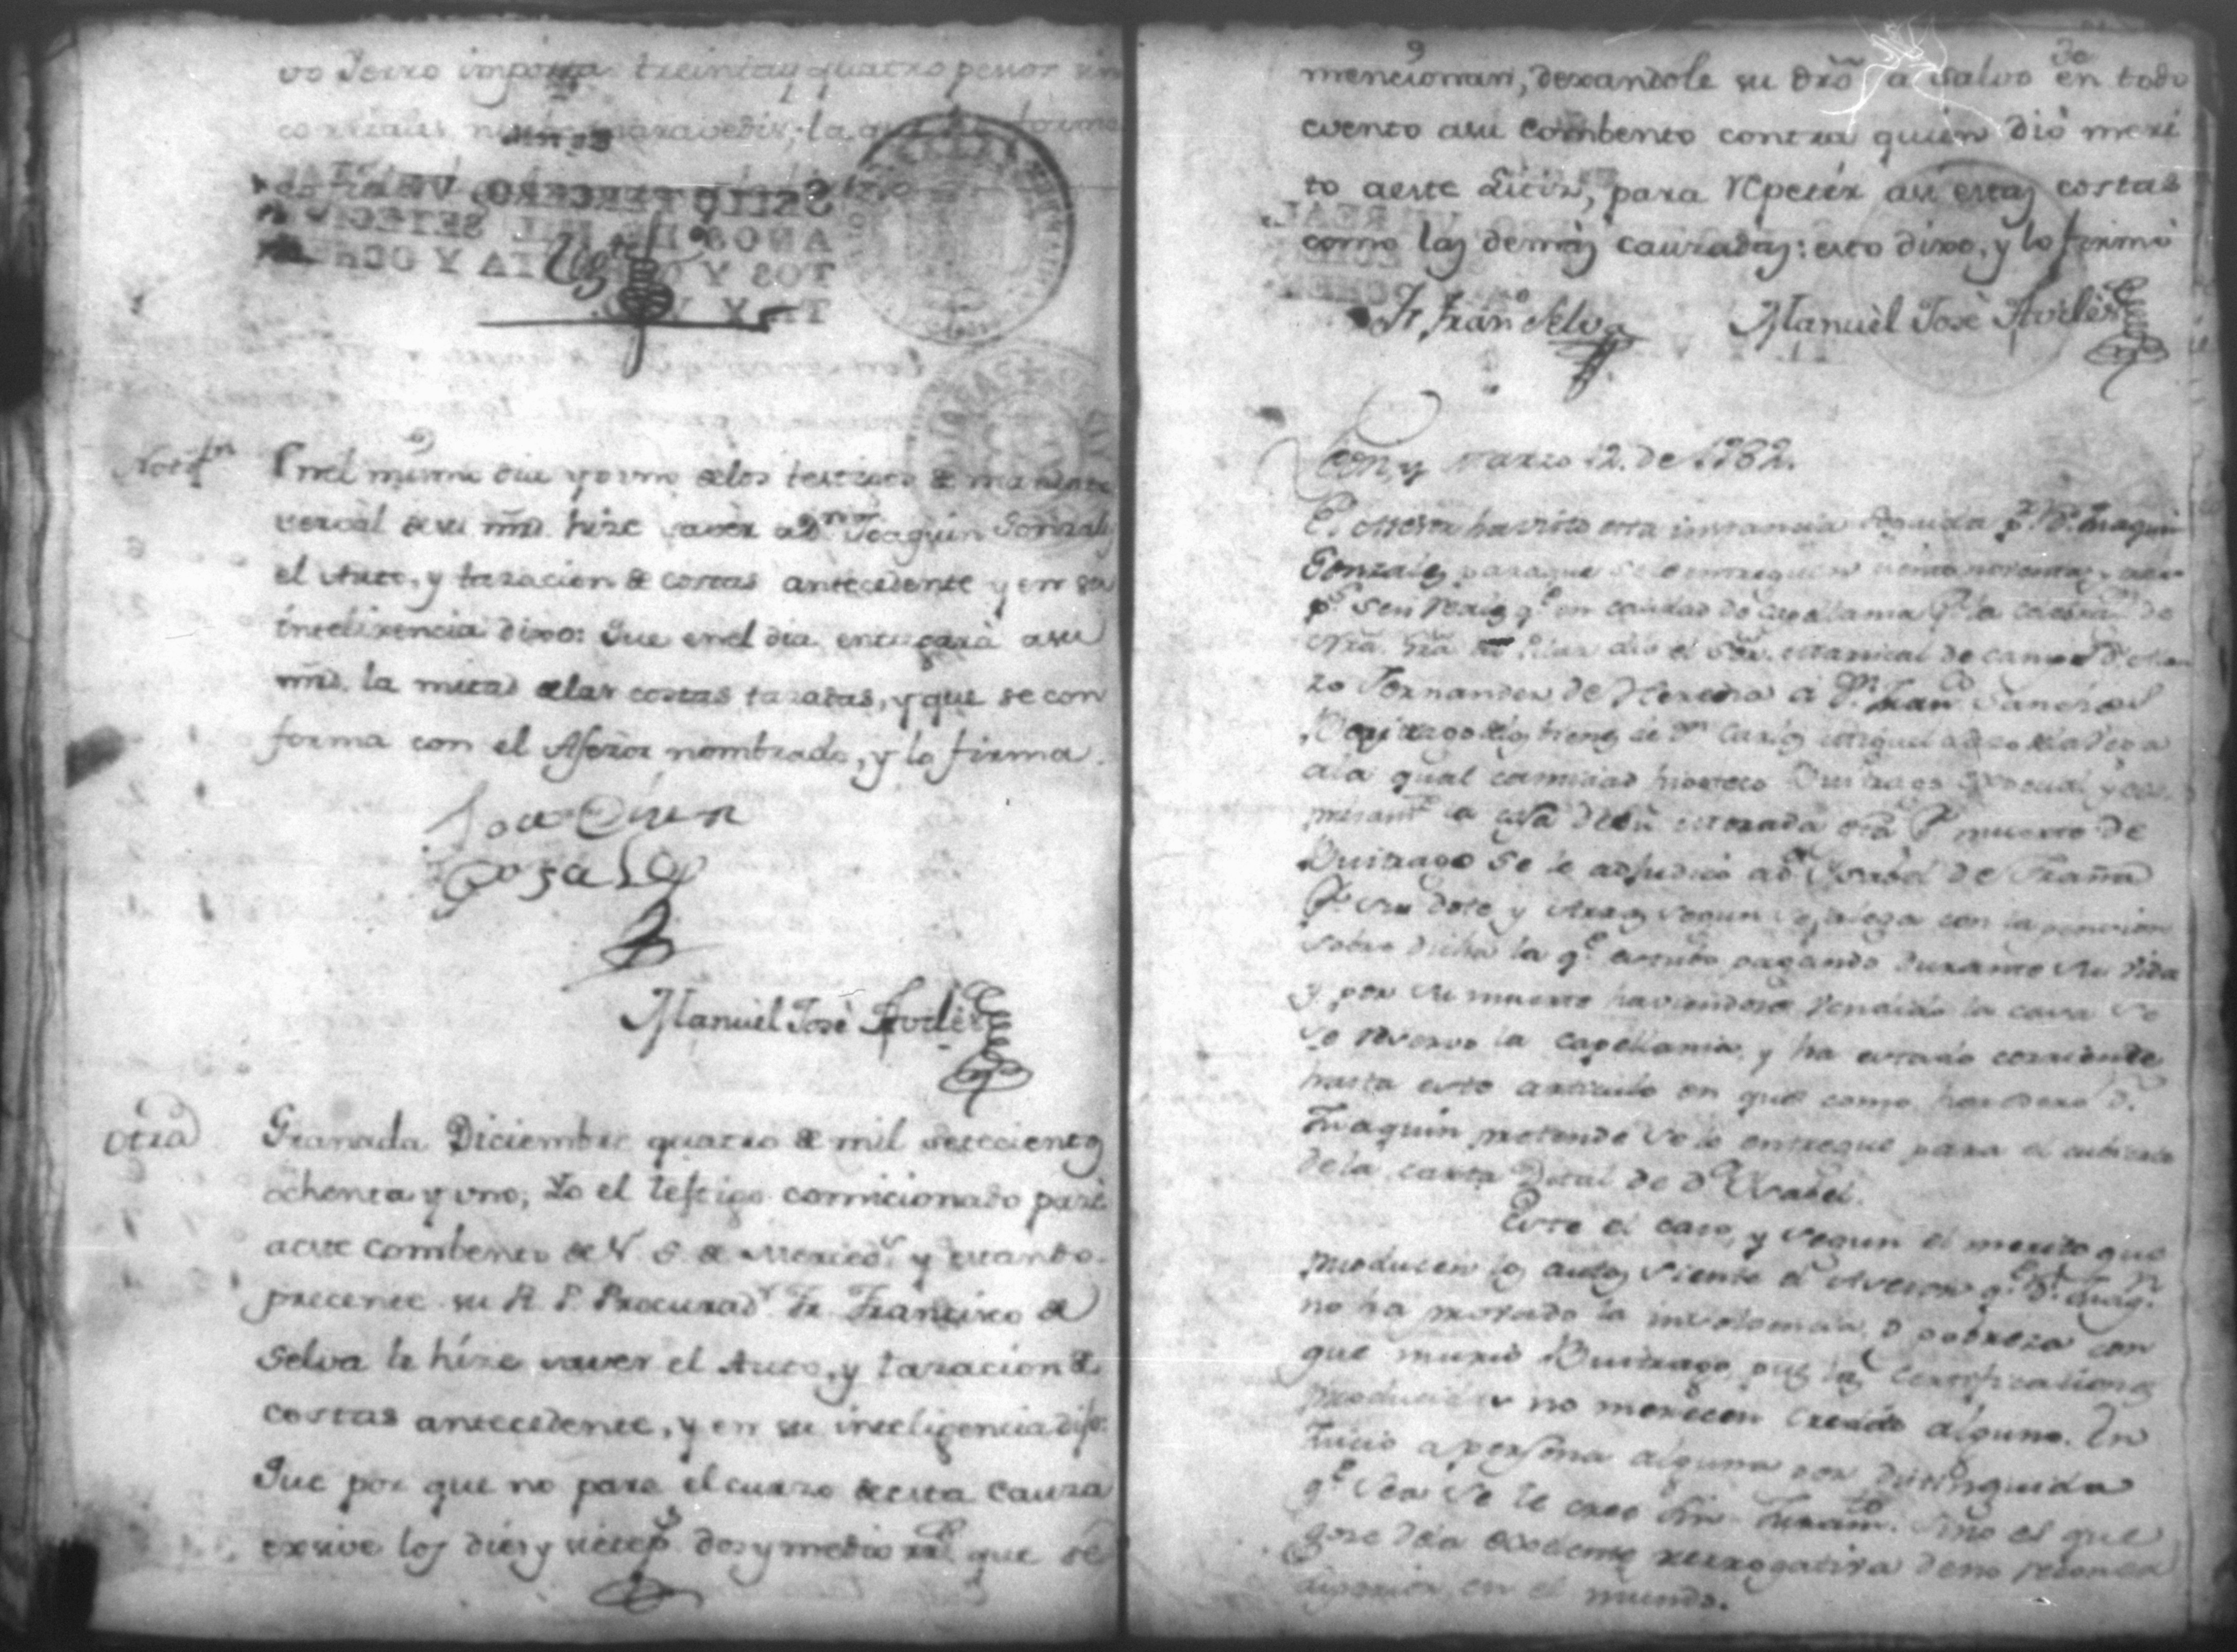 vo Ierro importa treinta y quatro pessos
maravedis, la
SELLO TERCERO, VN
AÑOS DE MIL SETECIEN
TOS Y OCHENTA Y OCHEN
TA Y VNO.
Notn
En el mismo dia y o uno delos testigos de
verval de su md. hize saver a Dn Joaquin Gonzalez
el Auto, y tazacion de costas antecedente y en su
inteligencia dixo: Que en el dia entregará a su
md. la mitad delas costas tazadas, y que se con
forma con el Asesor nombrado, y lo firma.
Joaquin
Gosalez
Manuèl Josè Avilès
Otra
Granada Diciembre quatro de mil setecientos
ochenta y uno, Yo el testigo comicionado pasé
a este Combento de N. S. de Mercedes y estando
precente su R. P. Procurador Fr. Francisco de
Selva le hize saver el Auto, y tazacion de
costas antecedente, y en su inteligencia dijo:
Que por que no pare el curzo de esta Cauza
exsive los diez y siete ps. dos y medio rrs. que se
mencionan, dexandole su dro. à salvo en todo
evento a su Combento contra quien diò meri
to a este Litis, para repetir asi estas costas
como las demàs cauzadas: esto dixo, y lo firmò
Fr. Franco Selva Manuèl Josè Avilès
Leon, y Marzo 12. de 1782.
El Asesor ha visto esta instancia seguida pr. Dn. Juaquin
Gonzalez paraque se le entreguen
ps. seis reales qe. en calidad de Capellania pa. la de
Nra. Sra. del Pilar dio el Sor. Mariscal de Campo Dn.
Fernandez de Heredia á Dn. Franco Sanchez
Buitrago de los bienes de Dn. Carlos Miguel
ala qual cantidad hipoteco Buitrago
la casa de su morada esta pr. muerte de
Buitrago se le adjudicó a Da. Ysabel de
pr. su dote y Arras segun se alega con la pencion
sobre dicha la qe. estubo pagando durante su vida
y por su muerte haviendose vendido la casa se
le reservo la capellania, y ha estado corriente
hasta este articulo en que como heredero Dn.
Juaquin pretende se le entregue para el cubierto
dela carta Dotal de Da. Ysabel.
Este el caso, y segun el merito que
producen los autos siente el Asesor qe. Dn. Juaqn.
no ha provado la insolvencia, o pobreza con
que murió Buitrago, pues las Certificaciones
producidas no merecen credito alguno. En
Juicio a persona alguna por distinguida
qe. sea se le cree sin Juramto. sino es que
goze dela excelente prerrogativa de no reconocer
superior en el mundo.